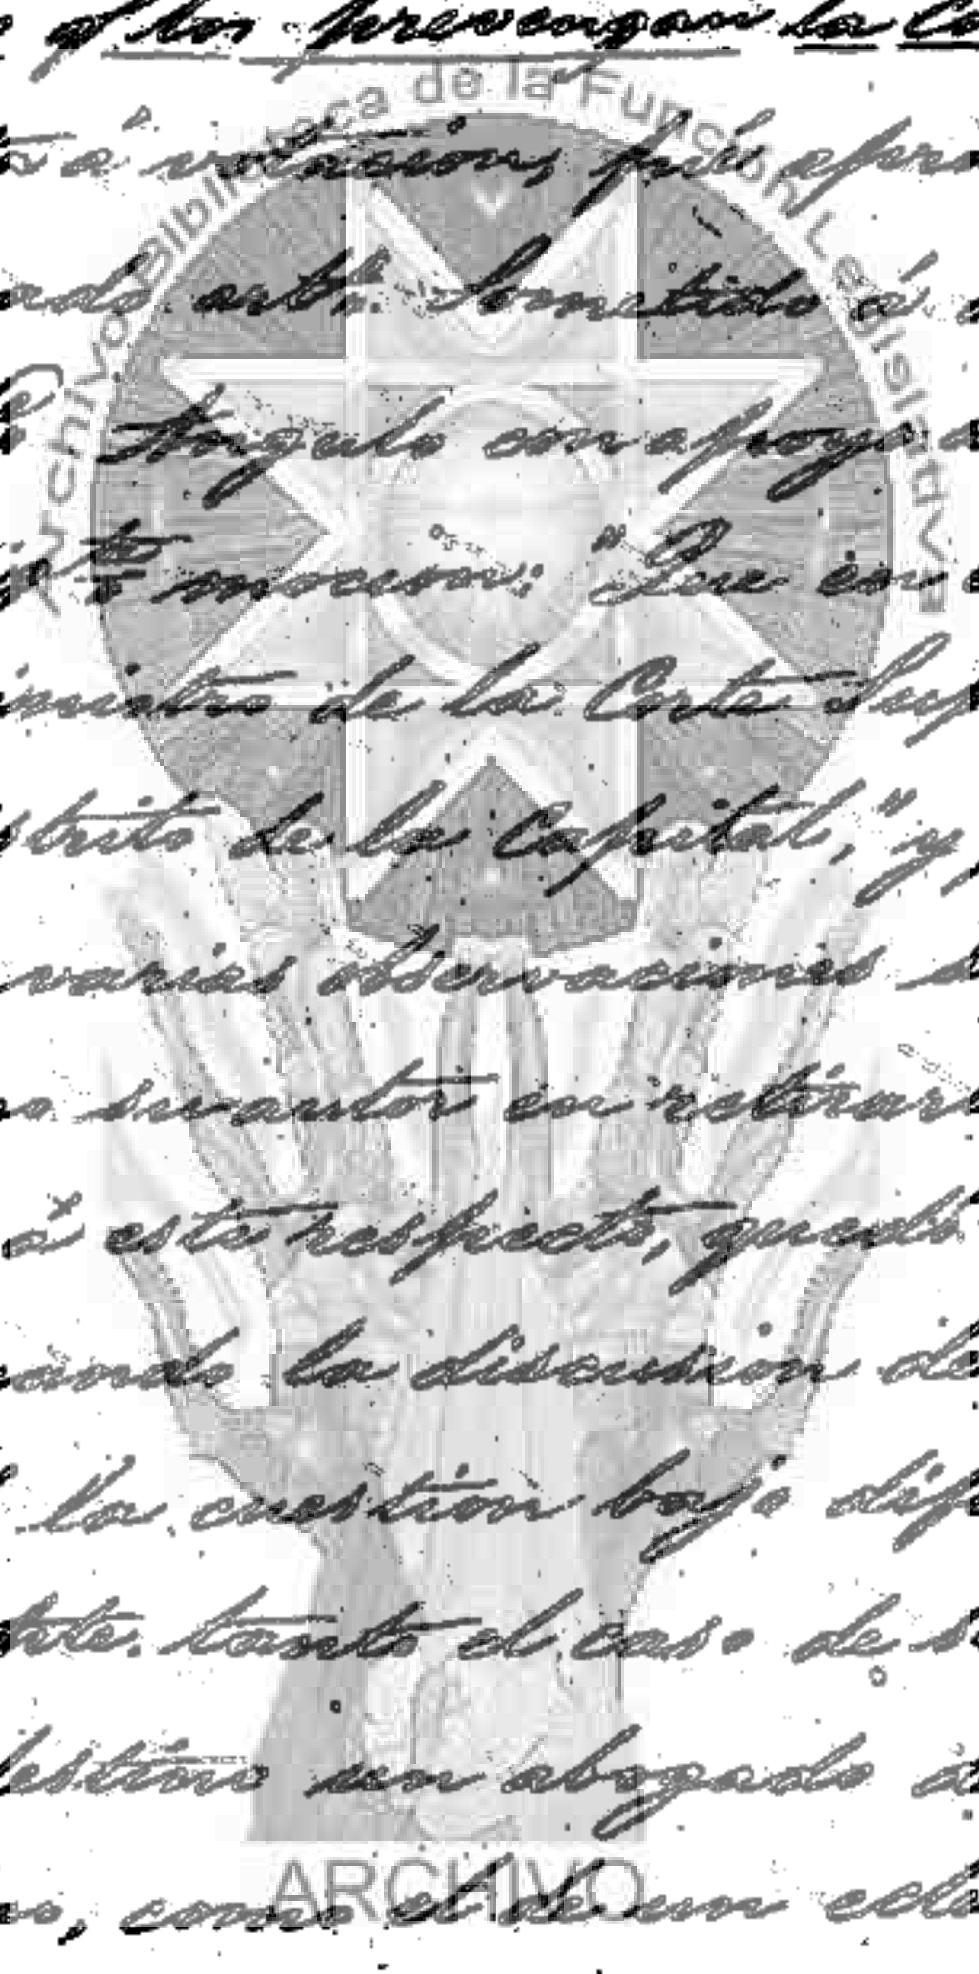 q los prevengan la
Archivo Biblioteca de la Función Legislativa
á votacion, fué apro
ado artº. Sometido á
Angulo con apoyo
te mocion: "Que en
inistro de la Corte Sup
strito de la Capital," y
varias observaciones
su autor en retirar
á este respecto, quedó
ando la discusion de
la cuestión bajo dif
te. tanto el caso de
destino un abogado
ARCHIVO
o, como el de un ecle